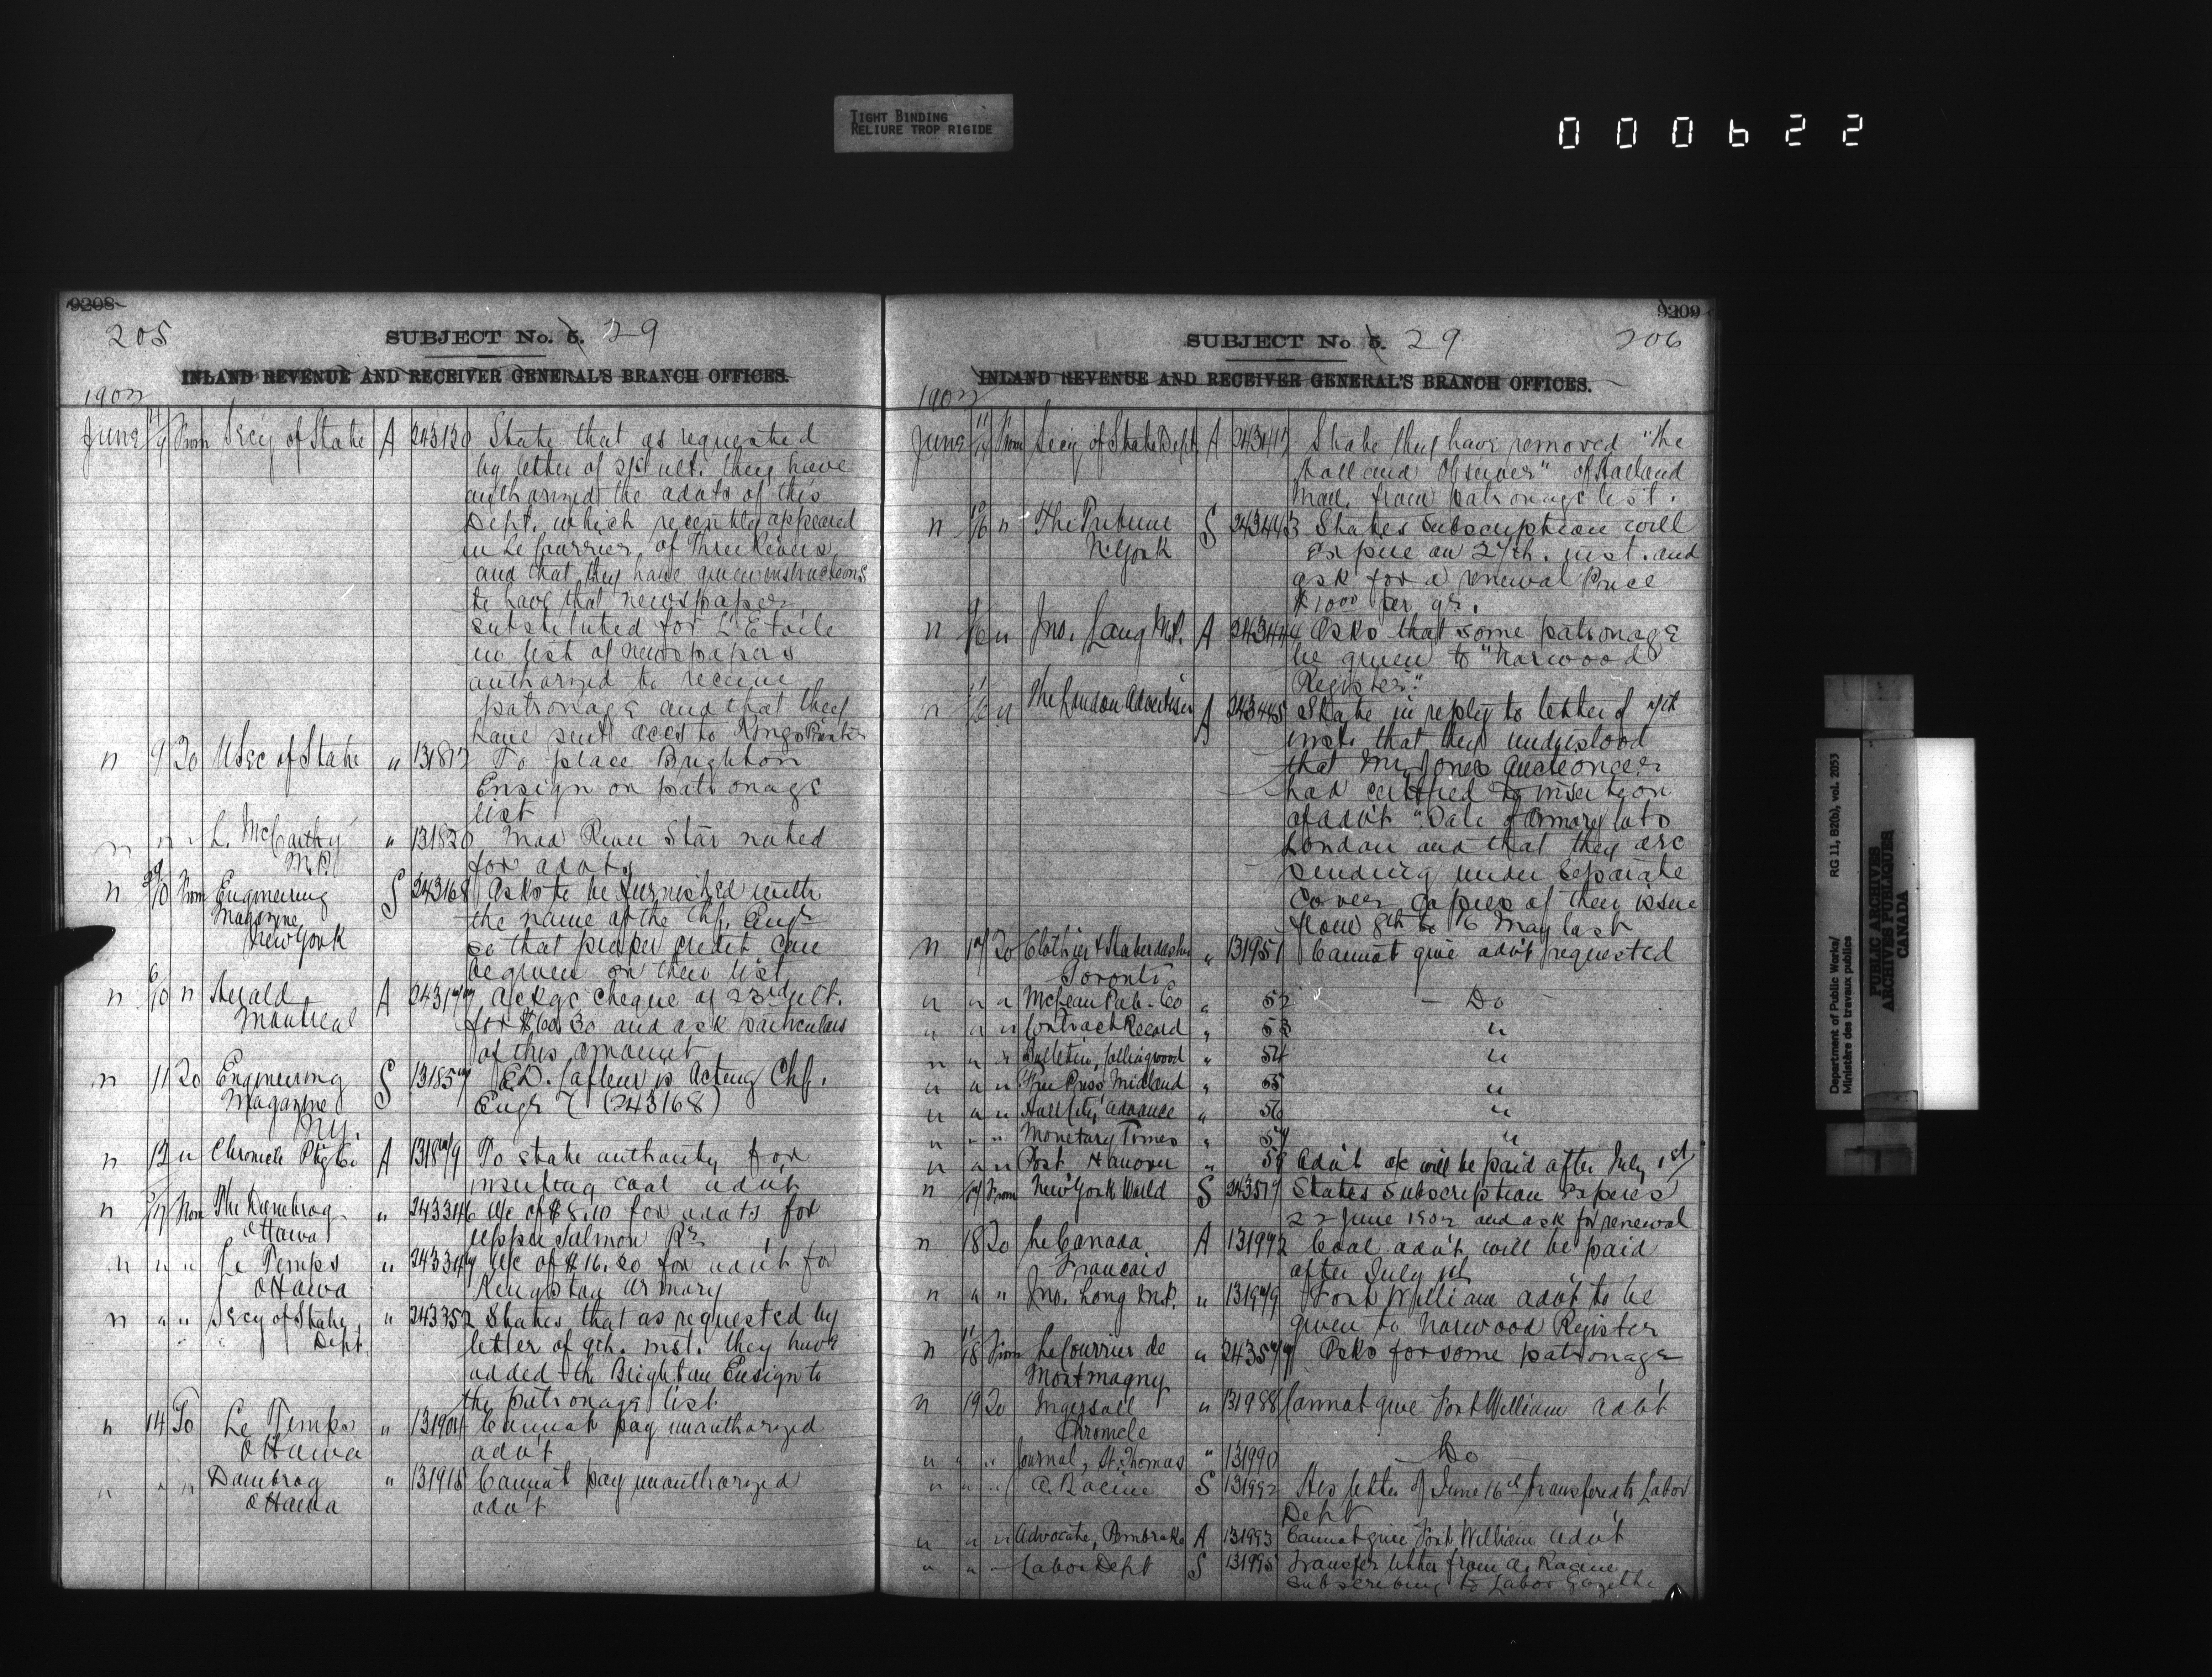 TIGHT BINDING
RELIURE TROP RIGIDE
000622
9208
205
SUBJECT No. 5. 29
INLAND REVENUE AND RECEIVER GENERAL'S BRANCH OFFICES.
1902
June 4/9 From Secy of State A 243120 State that as requested
by letter of ult. they have
authorized the advts of this
Dept. which recently appeared
in Le Courrier, of Three Rivers
and that they have given instructions
to have that newspaper
substituted for L'Etoile
in list of newspapers
authorized to receive
patronage and that they
have sent accs to Kings Printer
" 9 To U Sec of State " 13181 To place Brighton
Ensign on patronage
list
" " " L. McCarthy " 131820 Mad River Star noted
M.P. for advts
" 10 From Engineering S 243168 Asks to be furnished with
Magazine the name of the Chf. Engr
New York so that proper credit can
be given on their list
" 6/10 " Herald A 2431 Ackgs cheque of 23rd ult.
Montreal for $60.30 and ask particulars
of this amount
" 11 To Engineering S 13185 E.D. Lafleur is Acting Chf.
Magazine Engr (243168)
N.Y.
" 12 " Chronicle Ptg Co A 1318 9 To state authority for
inserting coal advt
" From The Dambrog " 243346 A/c of $8.10 for advts for
Ottawa Upper Salmon Rr
" " " Le Temps " 24334 A/c of $16.20 for advt for
Ottawa Kingston armory
" " " Secy of State " 243352 States that as requested by
Dept. letter of 9th. inst. they have
added the Brighton Ensign to
the patronage list
" 14 To Le Temps " 131904 Cannot pay unauthorized
Ottawa advt
" " " Dambrog " 131918 Cannot pay unauthorized
Ottawa advt
9209
SUBJECT No 5. 29
206
INLAND REVENUE AND RECEIVER GENERAL'S BRANCH OFFICES.
1902
June From Secy of State Dept A 24341 State they have removed "the
Holland Observer" of Holland
Man. from patronage list.
" /16 " The Tribune S 243443 States subscription will
N. York expire on 27th. inst. and
ask for a renewal Price
$10.00 per yr.
" /16 " Jno. Lang M.P. A 243444 Asks that some patronage
be given to "Norwood
Register."
" /16 " The London Advertiser A 243445 State in reply to letter of
inst. that they understood
that Mr. Jones Auctioneer
had certified to insertion
of advt "Sale of armory lots
London and that they are
sending under separate
cover copies of their issue
from 8th to 16 May last
" 17 To Clothier & Haberdasher " 131951 Cannot give advt requested
Toronto
" " " McLean Pub. Co " 52 Do
" " " Contract Record " 53 "
" " " Bulletin, Collingwood " 54 "
" " " Free Press Midland " 55 "
" " " Advance " 56 "
" " " Monetary Times " 57 "
" " " Post, Hanover " 58 Advt a/c will be paid after July 1st
" /17 From New York World S 24351 States subscription expires
22 June 1902 and ask for renewal
" 18 To Le Canada A 13192 Coal advt will be paid
Francais after July 1st
" " " Jno. Lang M.P. " 1319 9 Fort William advt to be
given to Norwood Register
" /18 From Le Courrier de " 24354 Asks for some patronage
Montmagny
" 19 To Ingersoll " 131988 Cannot give Fort William advt
Chronicle
" " " Journal, St. Thomas " 131990 Do
" " " A. Racine S 131992 His letter of June 16th transferred to Labor
Dept
" " " Advocate, Pembroke A 131993 Cannot give Fort William advt
" " " Labor Dept S 131995 Transfer letter from A. Racine
subscribing to Labor Gazette
Department of Public Works/
Ministère des travaux publics
RG 11, B2(b), vol. 2053
PUBLIC ARCHIVES
ARCHIVES PUBLIQUES
CANADA